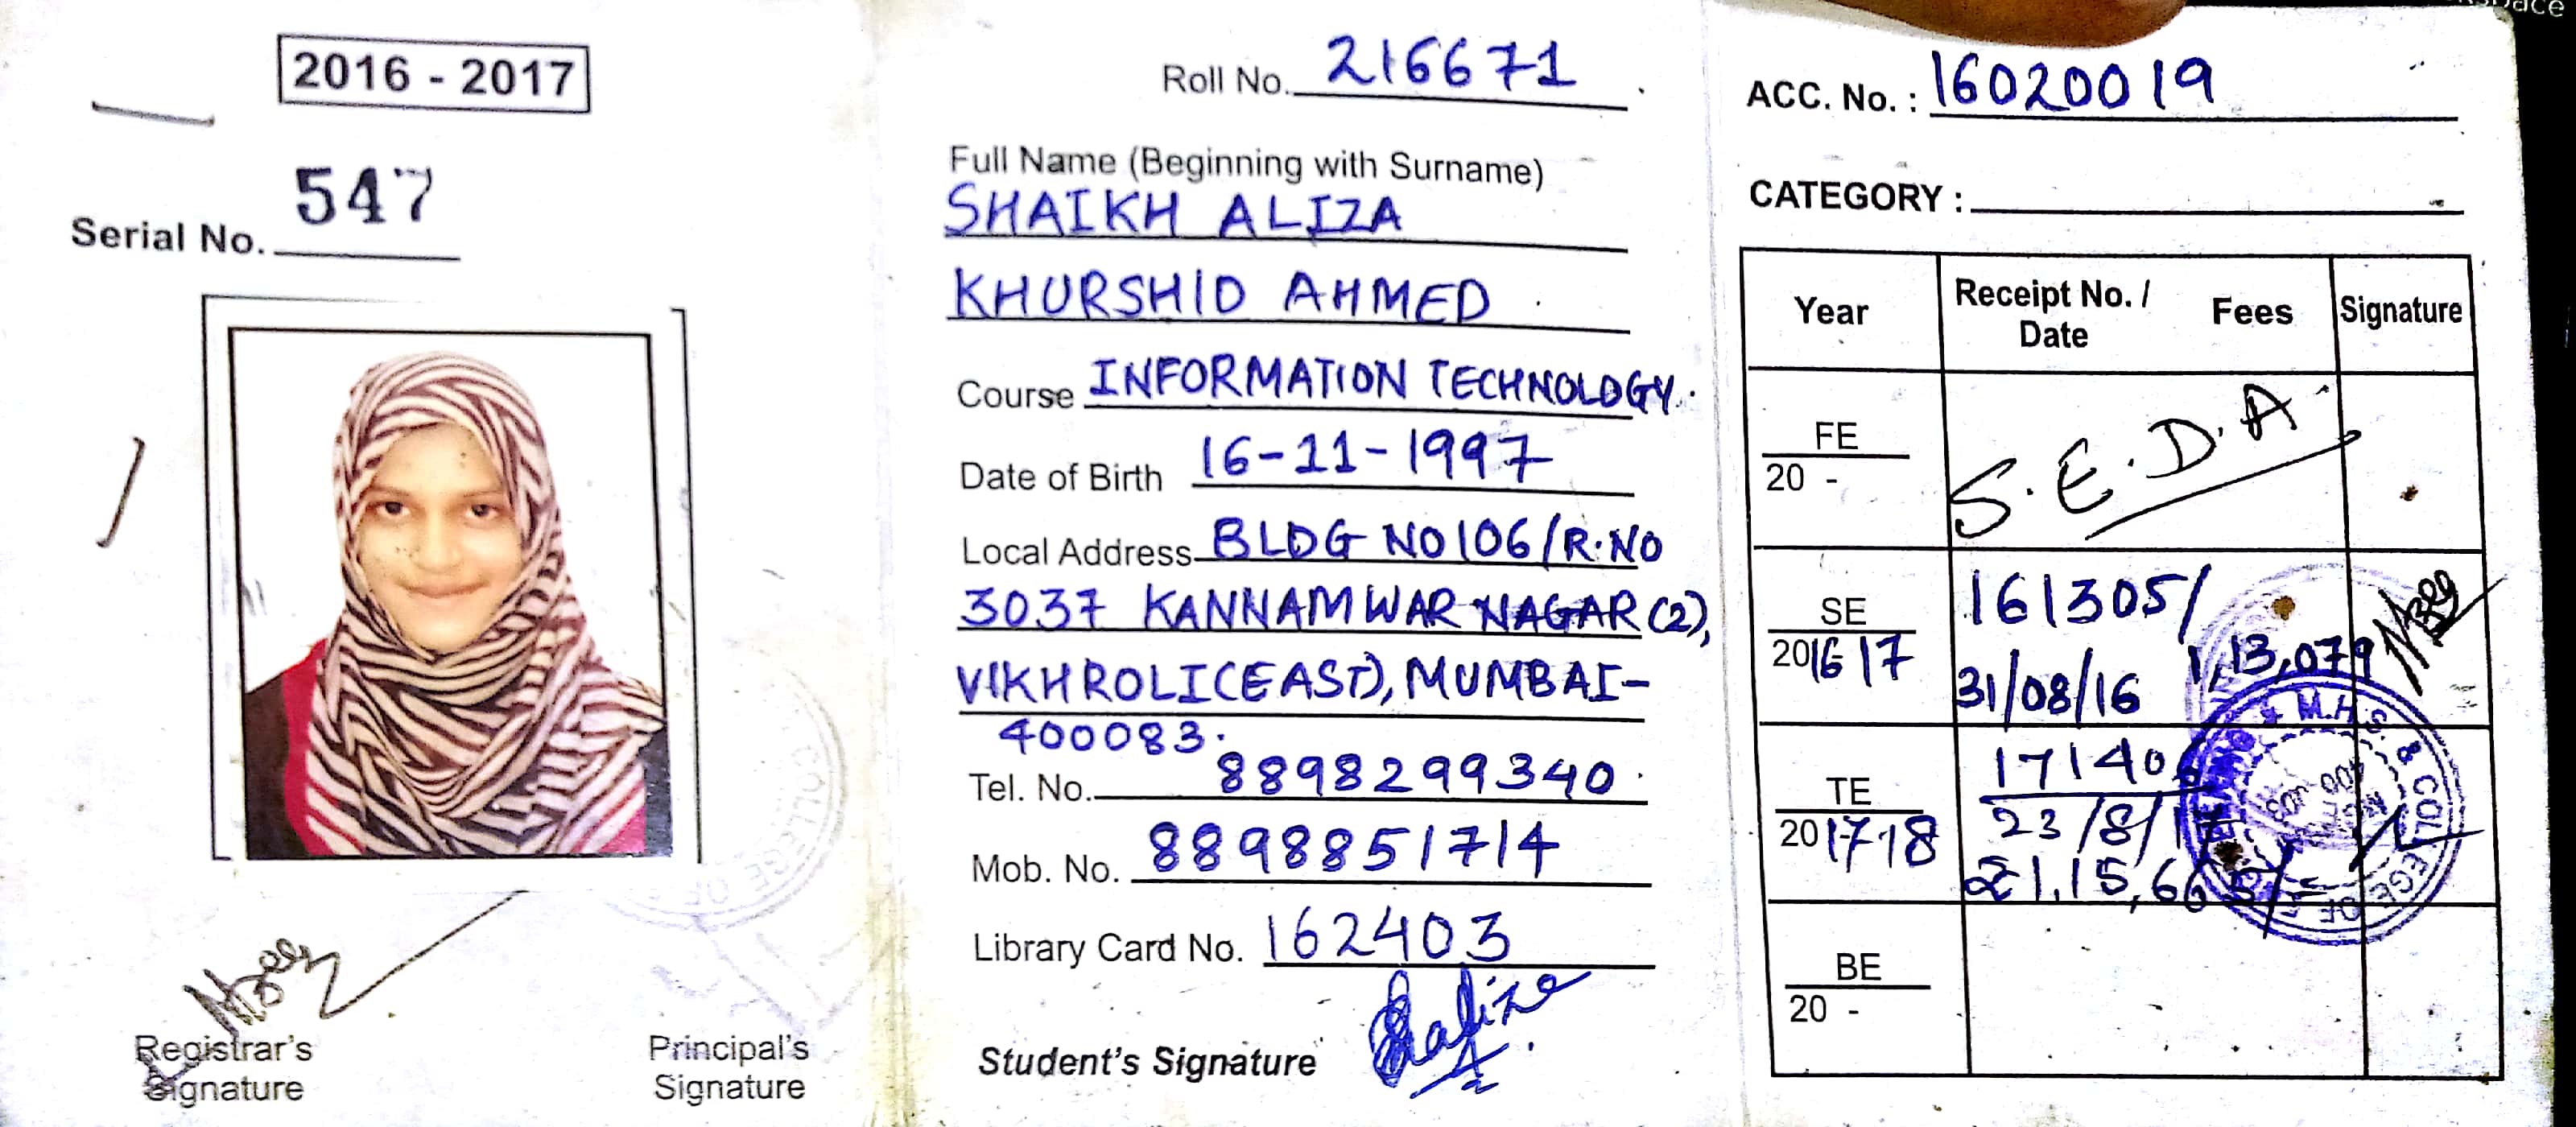 2016 - 2017
Serial No. 547
Registrar's
Signature
Principal's
Signature
Roll No. 216671
Full Name (Beginning with Surname)
SHAIKH ALIZA
KHURSHID AHMED
Course INFORMATION TECHNOLOGY.
Date of Birth 16-11-1997
Local Address BLDG NO 106/R.NO
3037 KANNAMWAR NAGAR (2),
VIKHROLI(EAST), MUMBAI-
400083.
Tel. No. 8898299340
Mob. No. 8898851714
Library Card No. 162403
Student's Signature
ACC. No. : 16020019
CATEGORY :
Year Receipt No. / Date Fees Signature
FE
20 -
S.E.D.A.
SE
2016 17
161305/
31/08/16
1,13,079
TE
2017-18
17140
23/8/17
BE
20 -
COLLEGE OF